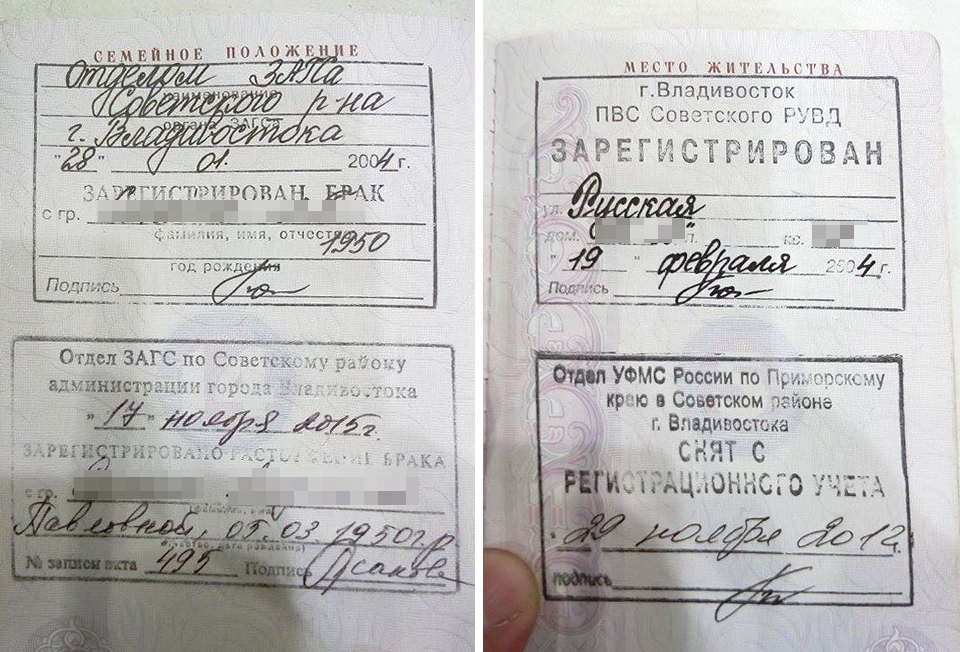 СЕМЕЙНОЕ ПОЛОЖЕНИЕ
Отделом ЗАГСа
наименование
Советского р-на
органа ЗАГСа
г. Владивостока
"28" 01. 2004 г.
ЗАРЕГИСТРИРОВАН БРАК
с гр.
фамилия, имя, отчество
1950
год рождения
Подпись
Отдел ЗАГС по Советскому району
администрации города Владивостока
"17" ноября 2015 г.
ЗАРЕГИСТРИРОВАНО РАСТОРЖЕНИЕ БРАКА
с гр.
Павловной, 05.03.1950 г.р.
№ записи акта 495 Подпись
МЕСТО ЖИТЕЛЬСТВА
г.Владивосток
ПВС Советского РУВД
ЗАРЕГИСТРИРОВАН
ул. Русская
дом. п. кв.
"19" февраля 2004 г.
Подпись
Отдел УФМС России по Приморскому
краю в Советском районе
г. Владивостока
СНЯТ С
РЕГИСТРАЦИОННОГО УЧЕТА
29 ноября 2012 г.
подпись